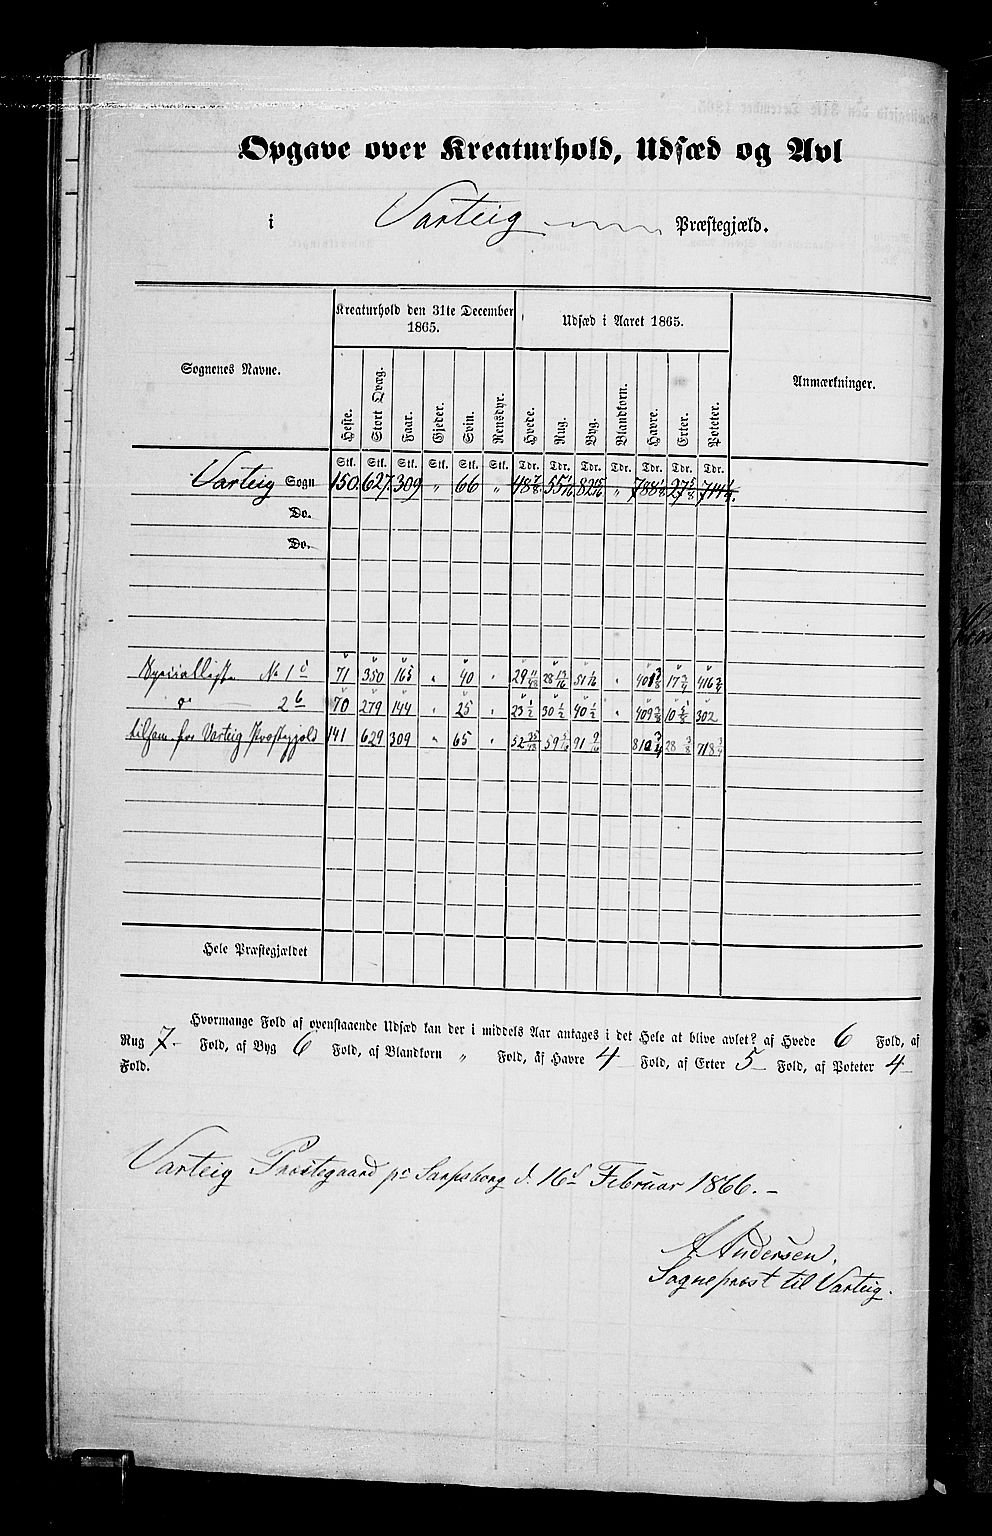 Opgave over Kreaturhold, Udsæd og Avl
i Varteig Præstegjæld.
Sognenes Navne.
Kreaturhold den 31te December 1865.
Udsæd i Aaret 1865.
Anmærkninger.
Heste. Stort Qvæg. Faar. Gjeder. Svin. Rensdyr. Hvede. Rug. Byg. Blandkorn. Havre. Erter. Poteter.
Stk. Stk. Stk. Stk. Stk. Stk. Tdr. Tdr. Tdr. Tdr. Tdr. Tdr. Tdr.
Varteig Sogn 150. 627. 309 " 66 " 48 7/8 55 1/16 82 9/16 " 788 1/8 27 5/8 744 1/4.
Do.
Do.
Specialliste No 1 71 350 165 " 40 " 29 11/48 28 13/16 51 1/16 " 401 3/8 17 3/4 416 3/4
do 2 70 279 144 " 25 " 23 1/2 30 1/2 40 1/2 " 409 3/8 10 5/8 302
tilsam. for Varteig Præstegjeld 141 629 309 " 65 " 52 35/48 59 5/16 91 9/16 810 3/4 28 3/8 718 3/4
Hele Præstegjældet
Hvormange Fold af ovenstaaende Udsæd kan der i middels Aar antages i det Hele at blive avlet? af Hvede 6 Fold, af
Rug 7 – Fold, af Byg 6 Fold, af Blandkorn " Fold, af Havre 4 – Fold, af Erter 5 – Fold, af Poteter 4 –
Fold.
Varteig Præstegaard pr Sarpsborg d. 16d Februar 1866. –
A Andersen.
Sognepræst til Varteig.